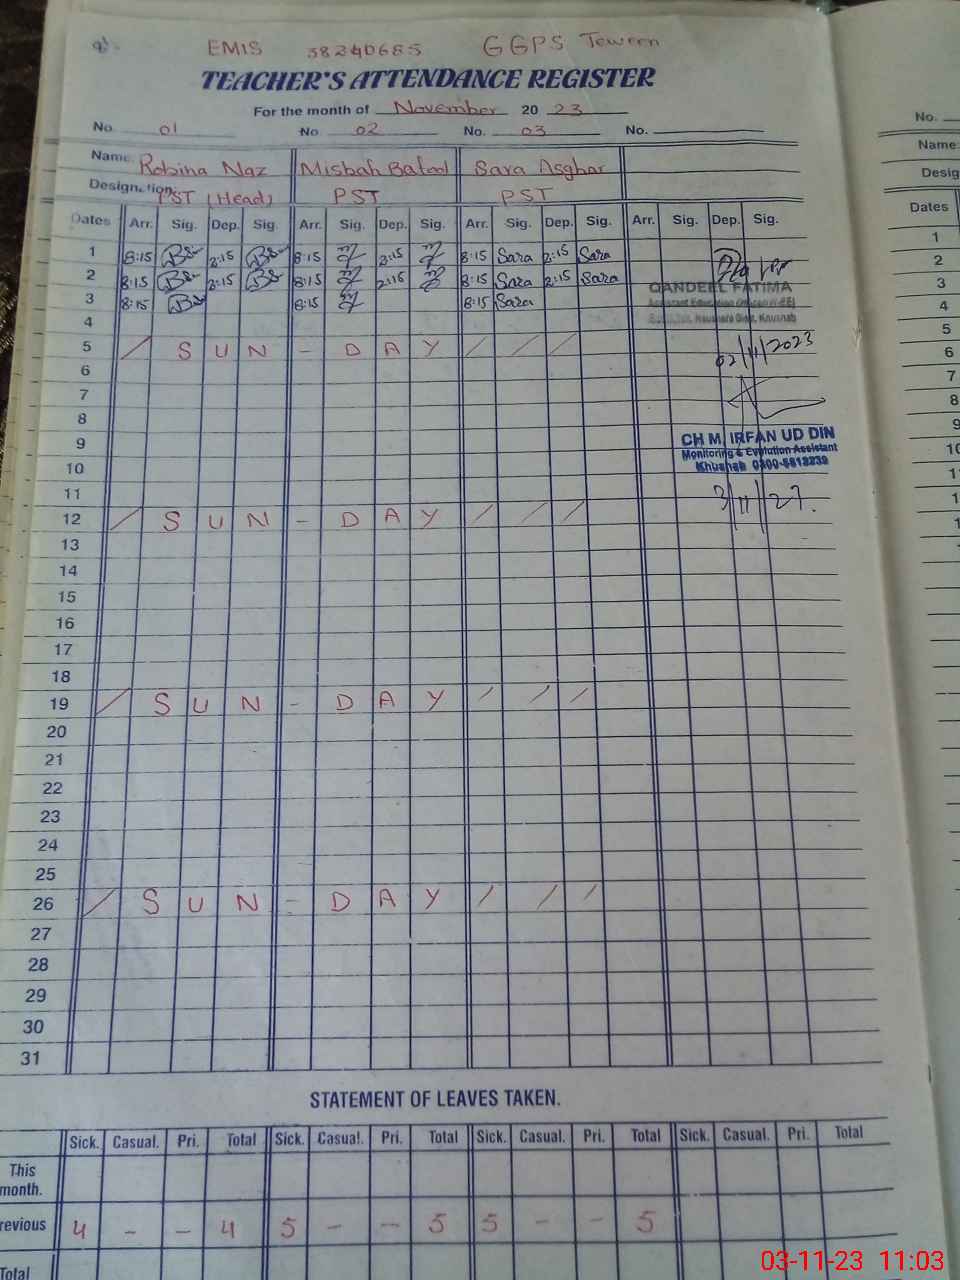 EMIS 38240685 GGPS Toween
TEACHER'S ATTENDANCE REGISTER
For the month of November 20 23
No. 01 No 02 No. 03 No.
Name. Robina Naz Misbah Batool Sara Asghar
Designation. PST (Head) PST PST
Dates Arr. Sig. Dep. Sig. Arr. Sig. Dep. Sig. Arr. Sig. Dep. Sig. Arr. Sig. Dep. Sig.
1 8:15 2:15 8:15 2:15 8:15 Sara 2:15 Sara
2 8:15 2:15 8:15 2:15 8:15 Sara 2:15 Sara
QANDEEL FATIMA
3 8:15 8:15 8:15 Sara
Assistant Education Officer
4
5 / S U N - D A Y / / /
02/11/2023
6
7
8
9
CH M. IRFAN UD DIN
Monitoring & Evolution Assistant
10
Khushab
11
3/11/23.
12 / S U N - D A Y / / /
13
14
15
16
17
18
19 / S U N - D A Y / / /
20
21
22
23
24
25
26 / S U N - D A Y / / /
27
28
29
30
31
STATEMENT OF LEAVES TAKEN.
Sick. Casual. Pri. Total Sick. Casual. Pri. Total Sick. Casual. Pri. Total Sick. Casual. Pri. Total
This
month.
revious 4 - - 4 5 - - 5 5 - - 5
Total
03-11-23 11:03
No.
Name:
Desig
Dates
1
2
3
4
5
6
7
8
9
10